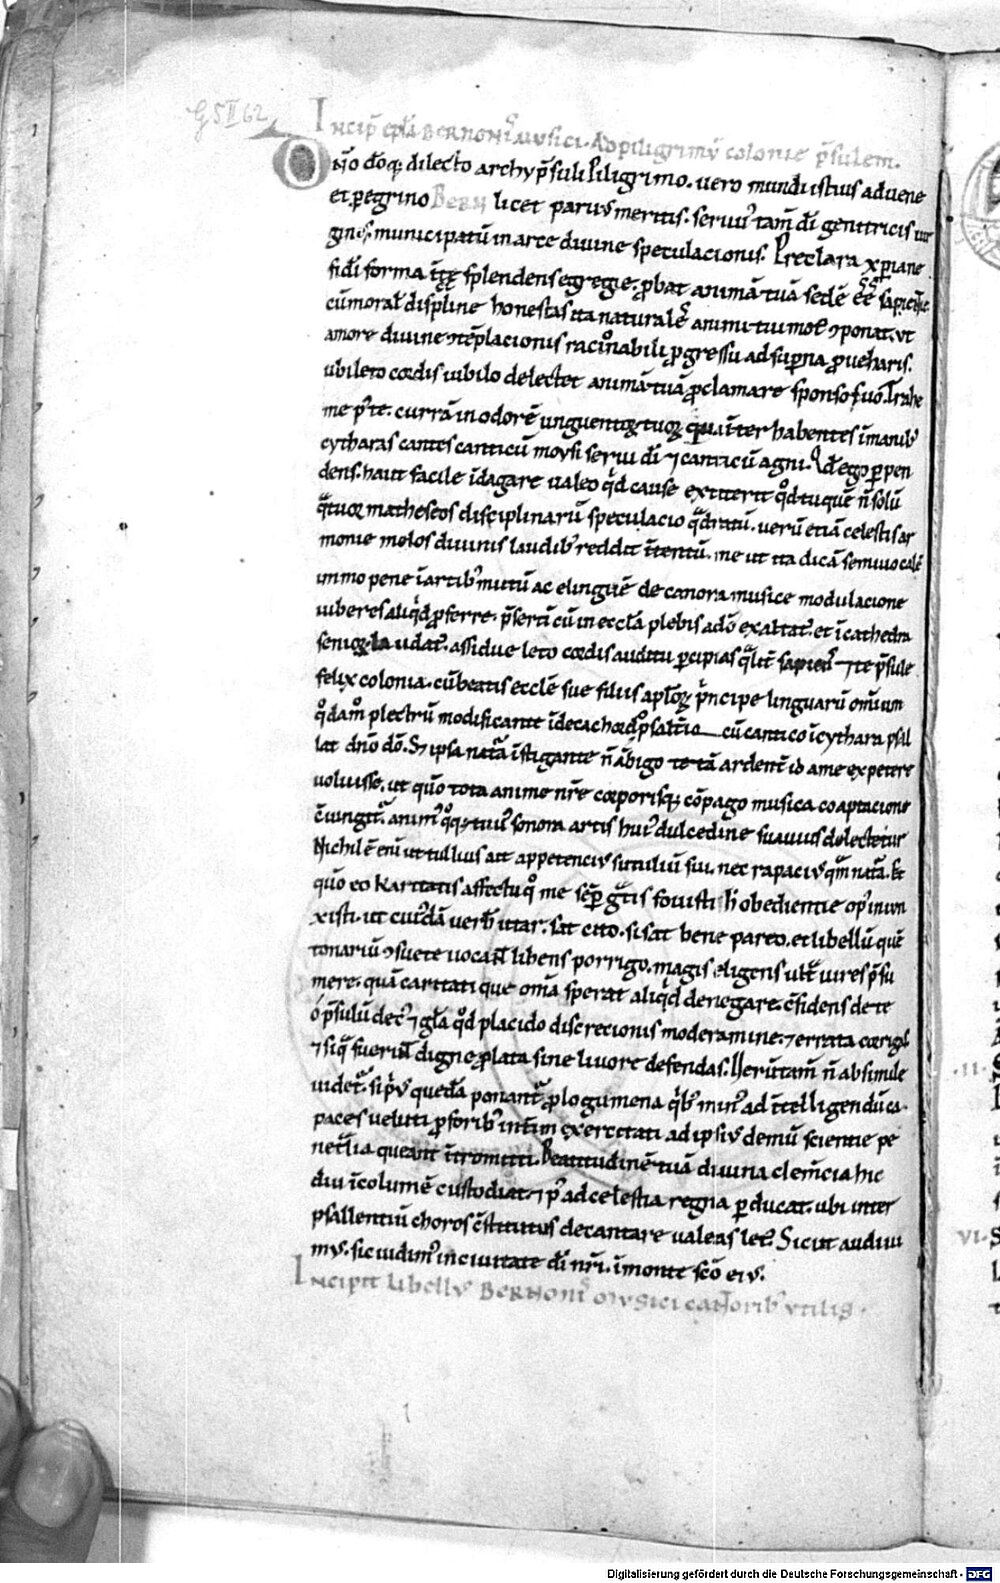 G 5 II 62
Incip̄ epl̄a BERNONIˢ MUSICI. AD piligrimū colonie p̄sulem.
Dn̄o dōq; dilecto archyp̄suli Piligrimo. uero mundi istius aduene
et peregrino Bern licet paruꝰ meritis. seruuˢ tam̄ dī genitricis uir
ginis. municipatū in arce diuine speculacionis. Preclara xpiane
fidi forma splendens egregie. ꝓbat animā tuā sedē eē sapientie
cū moral̄ displine honestas ita naturalē animi tui ꝯponat. ut
amore diuine ꝯtēplacionis racin̊abili ꝓgressu ad sup̄na ꝓueharis.
ubi leto cordis iubilo delectet animā tuā ꝓclamare sponso suo. Trahe
me p' te. currā in odorē unguentoꝝ tuoꝝ int̄er habentes ī manib;
cytharas cantes canticū moysi serui dī ⁊ canticū agni. Qd̄ ego ꝑpen
dens. haut facile īdagare ualeo qd̄ cause extiterit qd̄ tu quē n̄ solū
q̄tuoꝝ matheseos disciplinarū speculacio q̄dratū. uerū etiā celestis ar
monie melos diuinis laudib; reddit ītentū. me ut ita dicā semiuocalē
immo pene ī artib; mutū ac elinguē de canora musice modulacione
iuberes aliqd̄ ꝓferre. p̄serti cū in eccl̄a plebis adō exaltat̄. et ī cathedra
senioꝝ laudat̄. assidue leto cordis auditu ꝑcipias ⁊ te p̄sule
felix colonia. cū beatis eccl̄e sue filiis apl̄oꝝ p̄ncipe linguarū om̄ium
qd̄am plectrū modificante ī decachordo psalt̄io cū cantico ī cythara psal
lat dn̄o dō. S; ⁊ ipsa nat̄a īstigante n̄ ābigo te tā ardent̄ id a me expetere
uoluisse. ut quō tota anime nr̄e corporisq; cōpago musica coaptacione
ꝯiungit̄. animꝰ qq; tuuˢ sonora artis huiˢ dulcedine suauius delectetur
Nichil ē eni ut tullius ait appetenciꝰ sui. nec rapaciꝰ qm̄ nat̄a. Et
quō eo karitatis affectu qo me semp̄ gt̄is fouisti obedientie op' iniun
xisti. ut cuiusdā uerb̄ utar. sat cito. si sat bene pareo. et libellū quē
tonariū ꝯsuete uocant libens porrigo. magis eligens ult̄ uires p̄su
mere. quā caritati que om̄a sperat aliqd̄ denegare. ꝯfidens de te
o p̄sulū decꝰ ⁊ gl̄a qd̄ placido discrecionis moderamine. ⁊ errata corrigas
⁊ siq̄ fuerint digne ꝓlata sine liuore defendas. Uerūtam̄ n̄ absimile
uidet̄. si p'us quedā ponant̄ ꝓlogumena qb; minꝰ ad īntelligendū ca
paces ueluti ꝓ forib; int̄im exercitati ad ipsiꝰ demū scientie pe
net̄lia queant ītromitti. Beatitudinē tuā diuina clem̄cia hic
diu īcolumē custodiat. ⁊ p' ad celestia regna ꝑducat. ubi inter
psallentiū choros ꝯstitutus decantare ualeas let'. Sicut audiui
mꝰ. sic uidimꝰ in ciuitate dī nr̄i. ī monte scō eiꝰ.
Incipit libellꝰ BERNONIˢ MUSICI cātorib; utilis.
II.
VI.
Digitalisierung gefördert durch die Deutsche Forschungsgemeinschaft - DFG